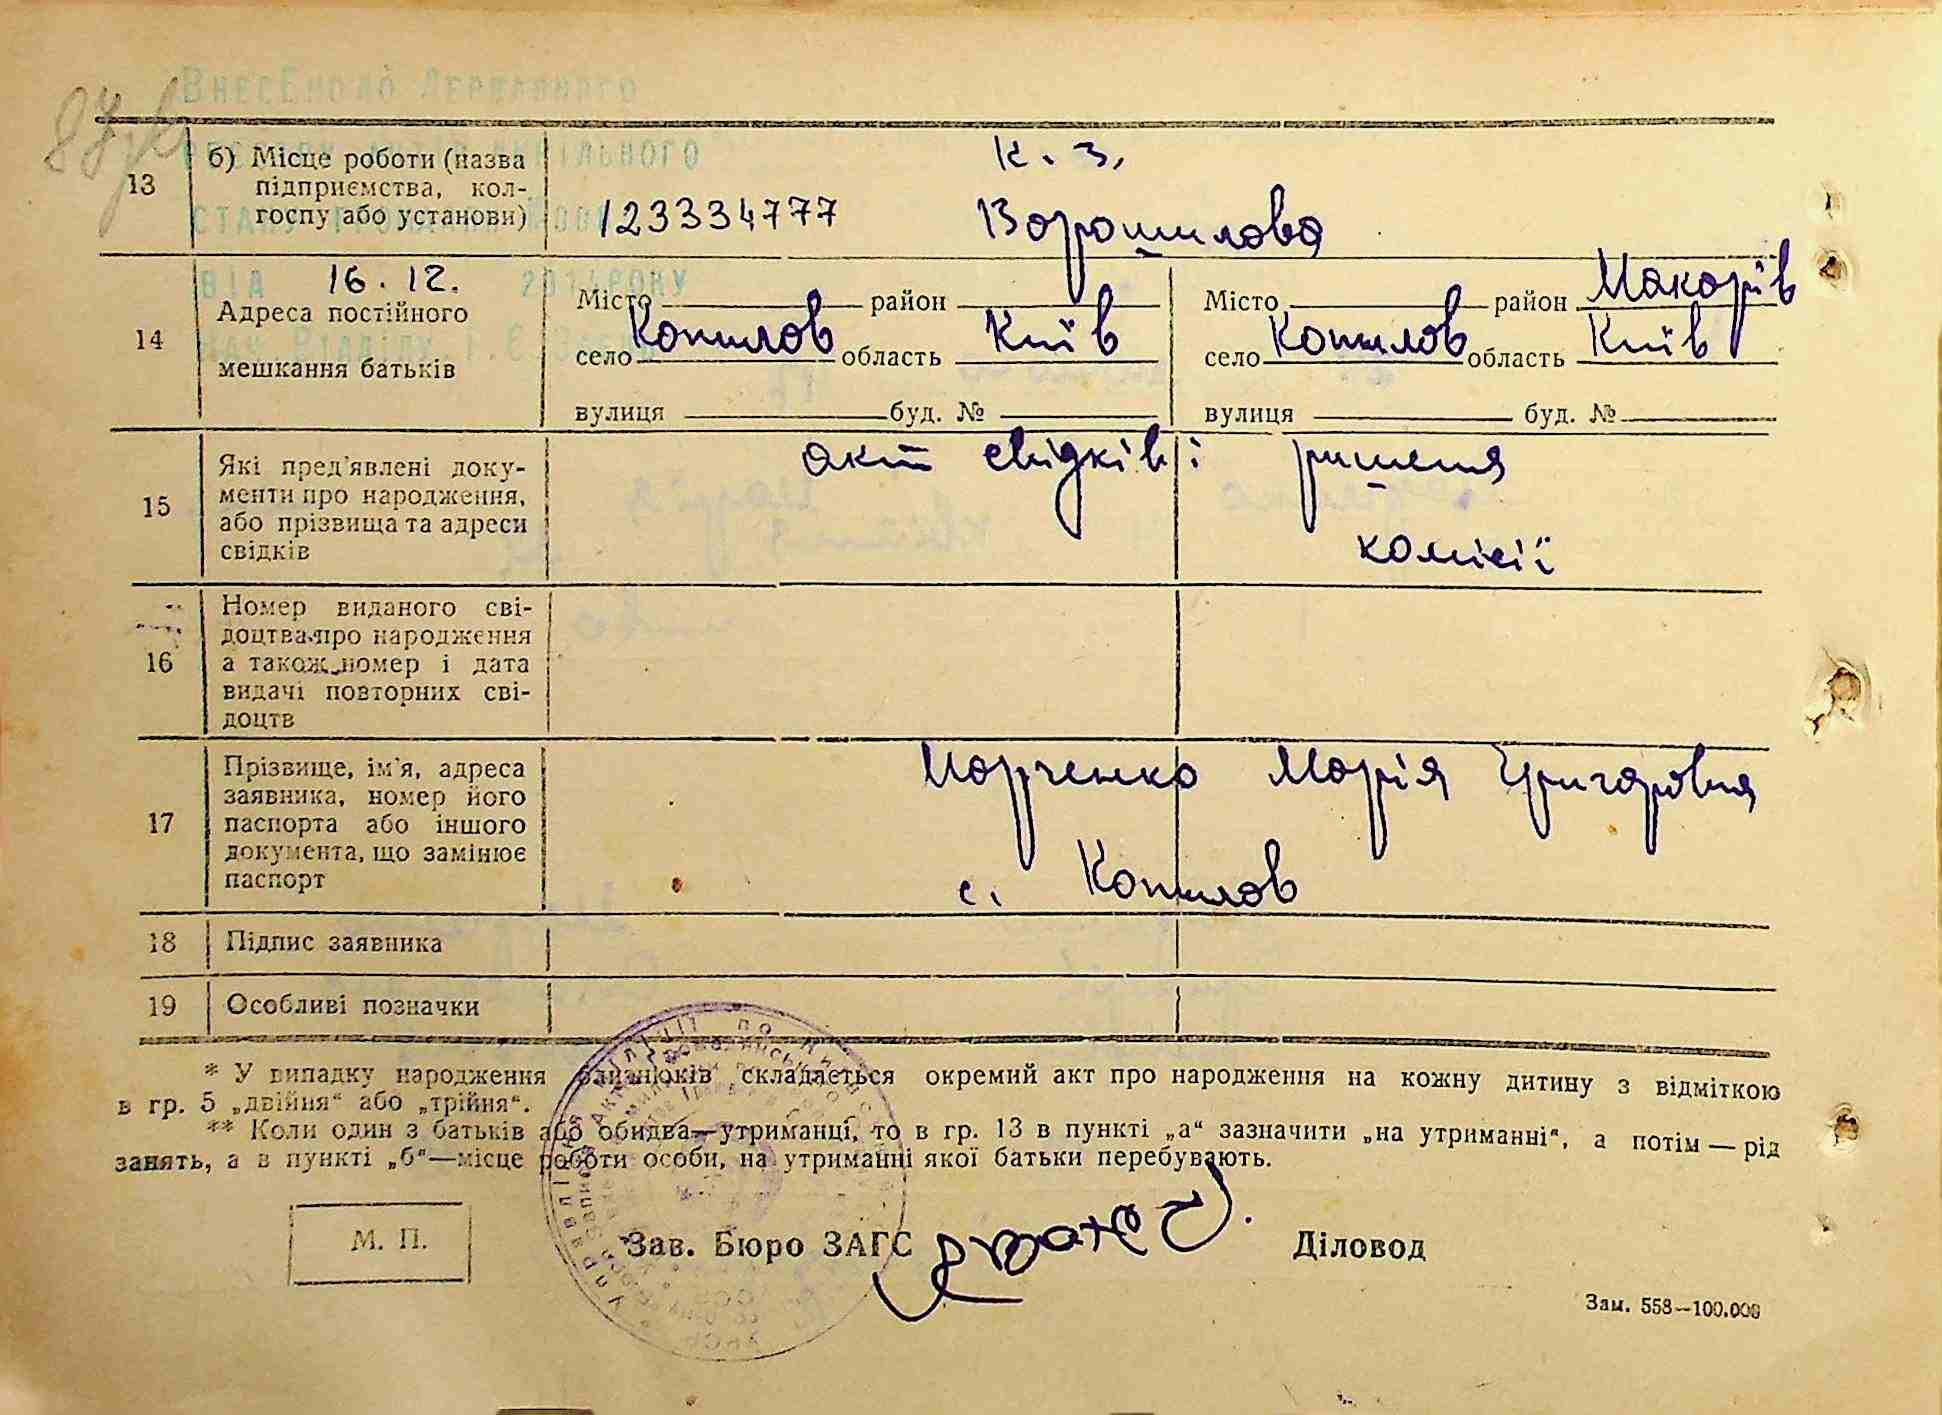 Внесено до Державного
87
13
б) Місце роботи (назва підприємства, кол-
госпу або установи)
К. з.
123334777 Ворошилова
стану громадян
від 16.12. 2014 року
14
Адреса постійного
мешкання батьків
Місто район
село Копилов область Київ
вулиця буд. №
Місто район Макарів
село Копилов область Київ
вулиця буд. №
15
Які пред'явлені доку-
менти про народження,
або прізвища та адреси
свідків
акт свідків і ришення
комісії
16
Номер виданого сві-
доцтва про народження
а також номер і дата
видачі повторних сві-
доцтв
17
Прізвище, ім'я, адреса
заявника, номер його
паспорта або іншого
документа, що замінює
паспорт
Марченко Марія Григоровна
с. Копилов
18 Підпис заявника
19 Особливі позначки
* У випадку народження близнюків складається окремий акт про народження на кожну дитину з відміткою
в гр. 5 „двійня“ або „трійня“.
** Коли один з батьків або обидва—утриманці, то в гр. 13 в пункті „а“ зазначити „на утриманні“, а потім — рід
занять, а в пункті „б“—місце роботи особи, на утриманні якої батьки перебувають.
М. П.
Зав. Бюро ЗАГС
Діловод
Зам. 558—100.000